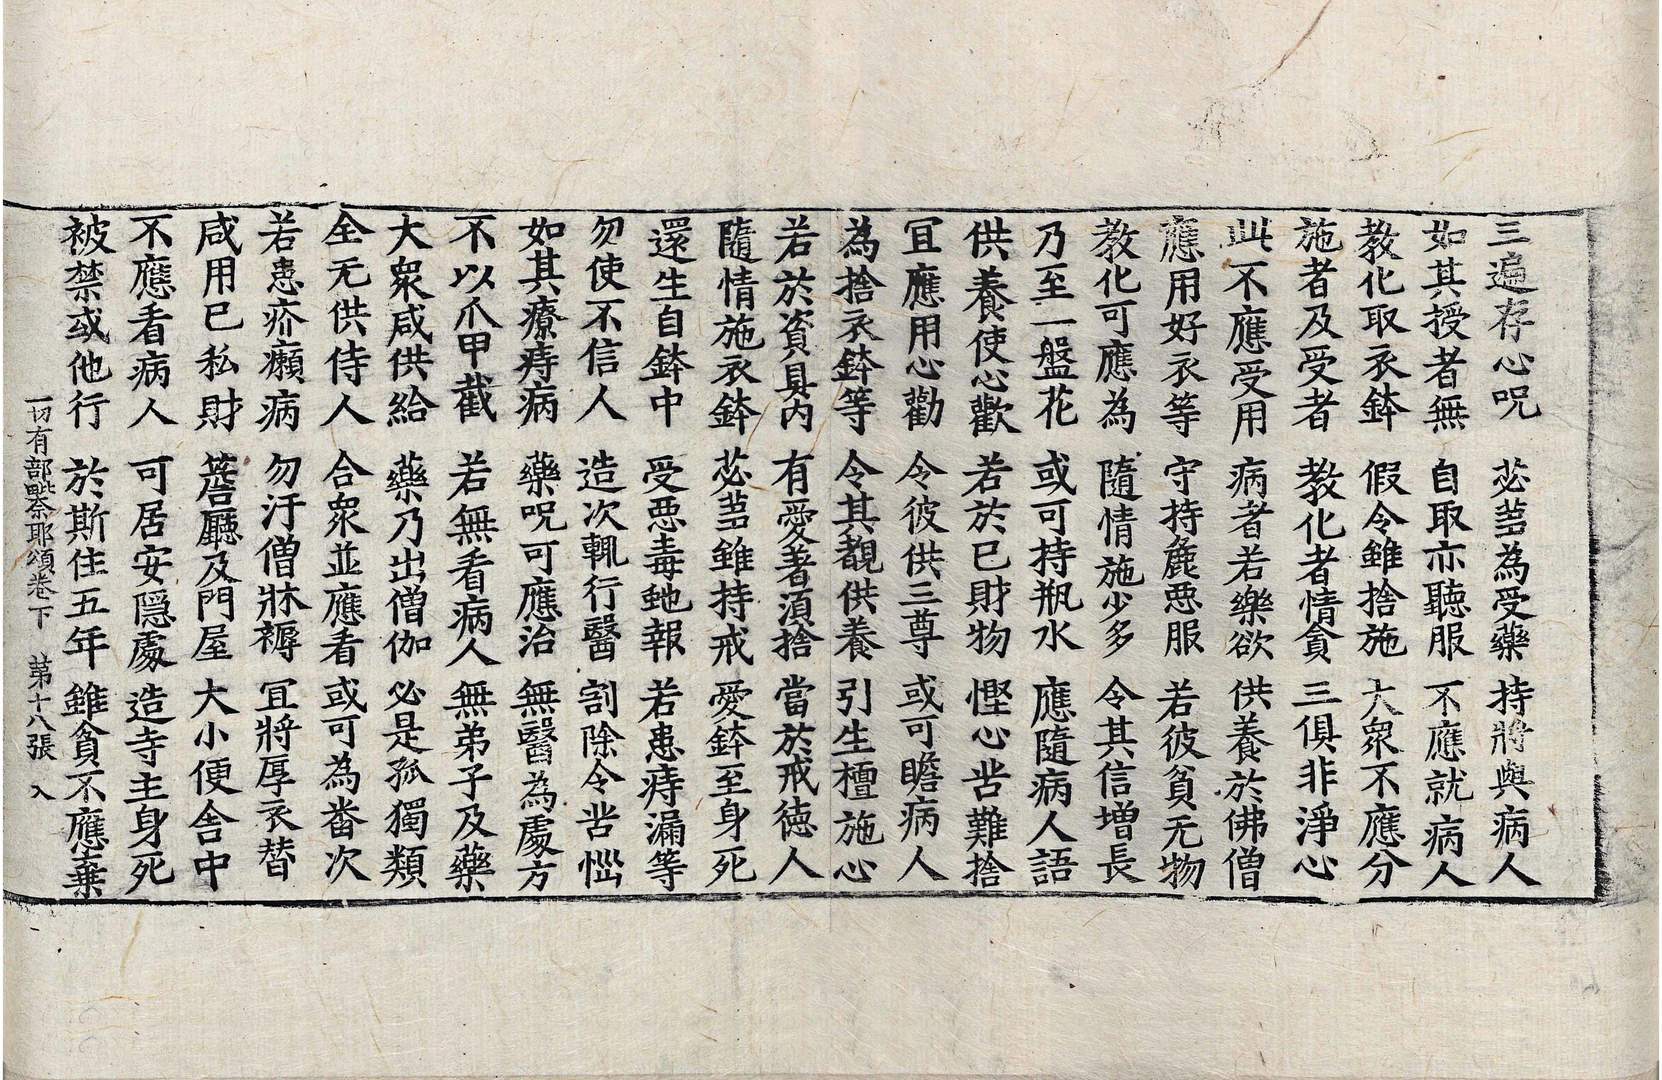 三遍存心呪　苾芻為受藥　持將與病人
如其授者無　自取亦聽服　不應就病人
教化取衣鉢　假令雖捨施　大衆不應分
施者及受者　教化者情貪　三俱非淨心
此不應受用　病者若樂欲　供養於佛僧
應用好衣等　守持麁惡服　若彼貧无物
教化可應為　隨情施少多　令其信増長
乃至一盤花　或可持瓶水　應隨病人語
供養使心歡　若於已財物　慳心苦難捨
冝應用心勸　令彼供三尊　或可瞻病人
為捨衣鉢等　令其覩供養　引生檀施心
若於資具內　有愛著湏捨　當於戒徳人
隨情施衣鉢　苾芻雖持戒　愛鉢至身死
還生自鉢中　受惡毒虵報　若患痔漏等
勿使不信人　造次輒行醫　割除令苦惱
如其療痔病　藥呪可應治　無醫為處方
不以爪甲截　若無看病人　無弟子及藥
大衆咸供給　藥乃出僧伽　必是孤獨類
全无供侍人　合衆並應看　或可為畨次
若患疥癩病　勿汙僧牀褥　冝將厚衣替
咸用已私財　簷廳及門屋　大小便舎中
不應看病人　可居安隱處　造寺主身死
被禁或他行　於斯住五年　雖貪不應棄
一切有部毗奈耶頌卷下　第十八張　入